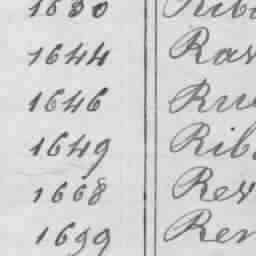 1630 Rib
1644 Rav
1646 Ru
1649 Rib
1668 Rev
1699 Rer